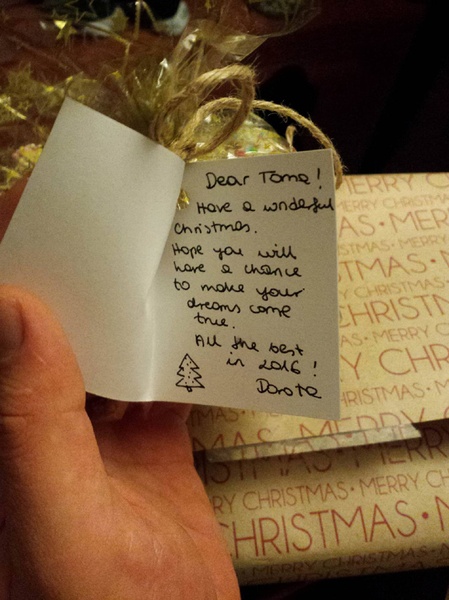 Dear Toma!
Have a wonderful
Christmas.
Hope you will
have a chance
to make your
dreams come
true.
All the best
in 2016!
Dorota
MERRY CHRISTMAS
MAS • MERRY
MERRY CHRISTM
CHRISTMAS
CHRISTMAS • MERRY
RY CHRISTMAS • MERRY
CHRISTMAS • M
MERRY CHRISTMAS